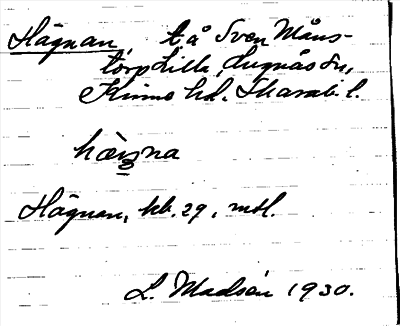 Hägnan, t.å Sven Måns-
torp Lilla, Lugnås sn,
Kinne hd. Skarab. l.
hàɳna
Hägnan, kb. 29, mtl.
L. Madsén 1930.